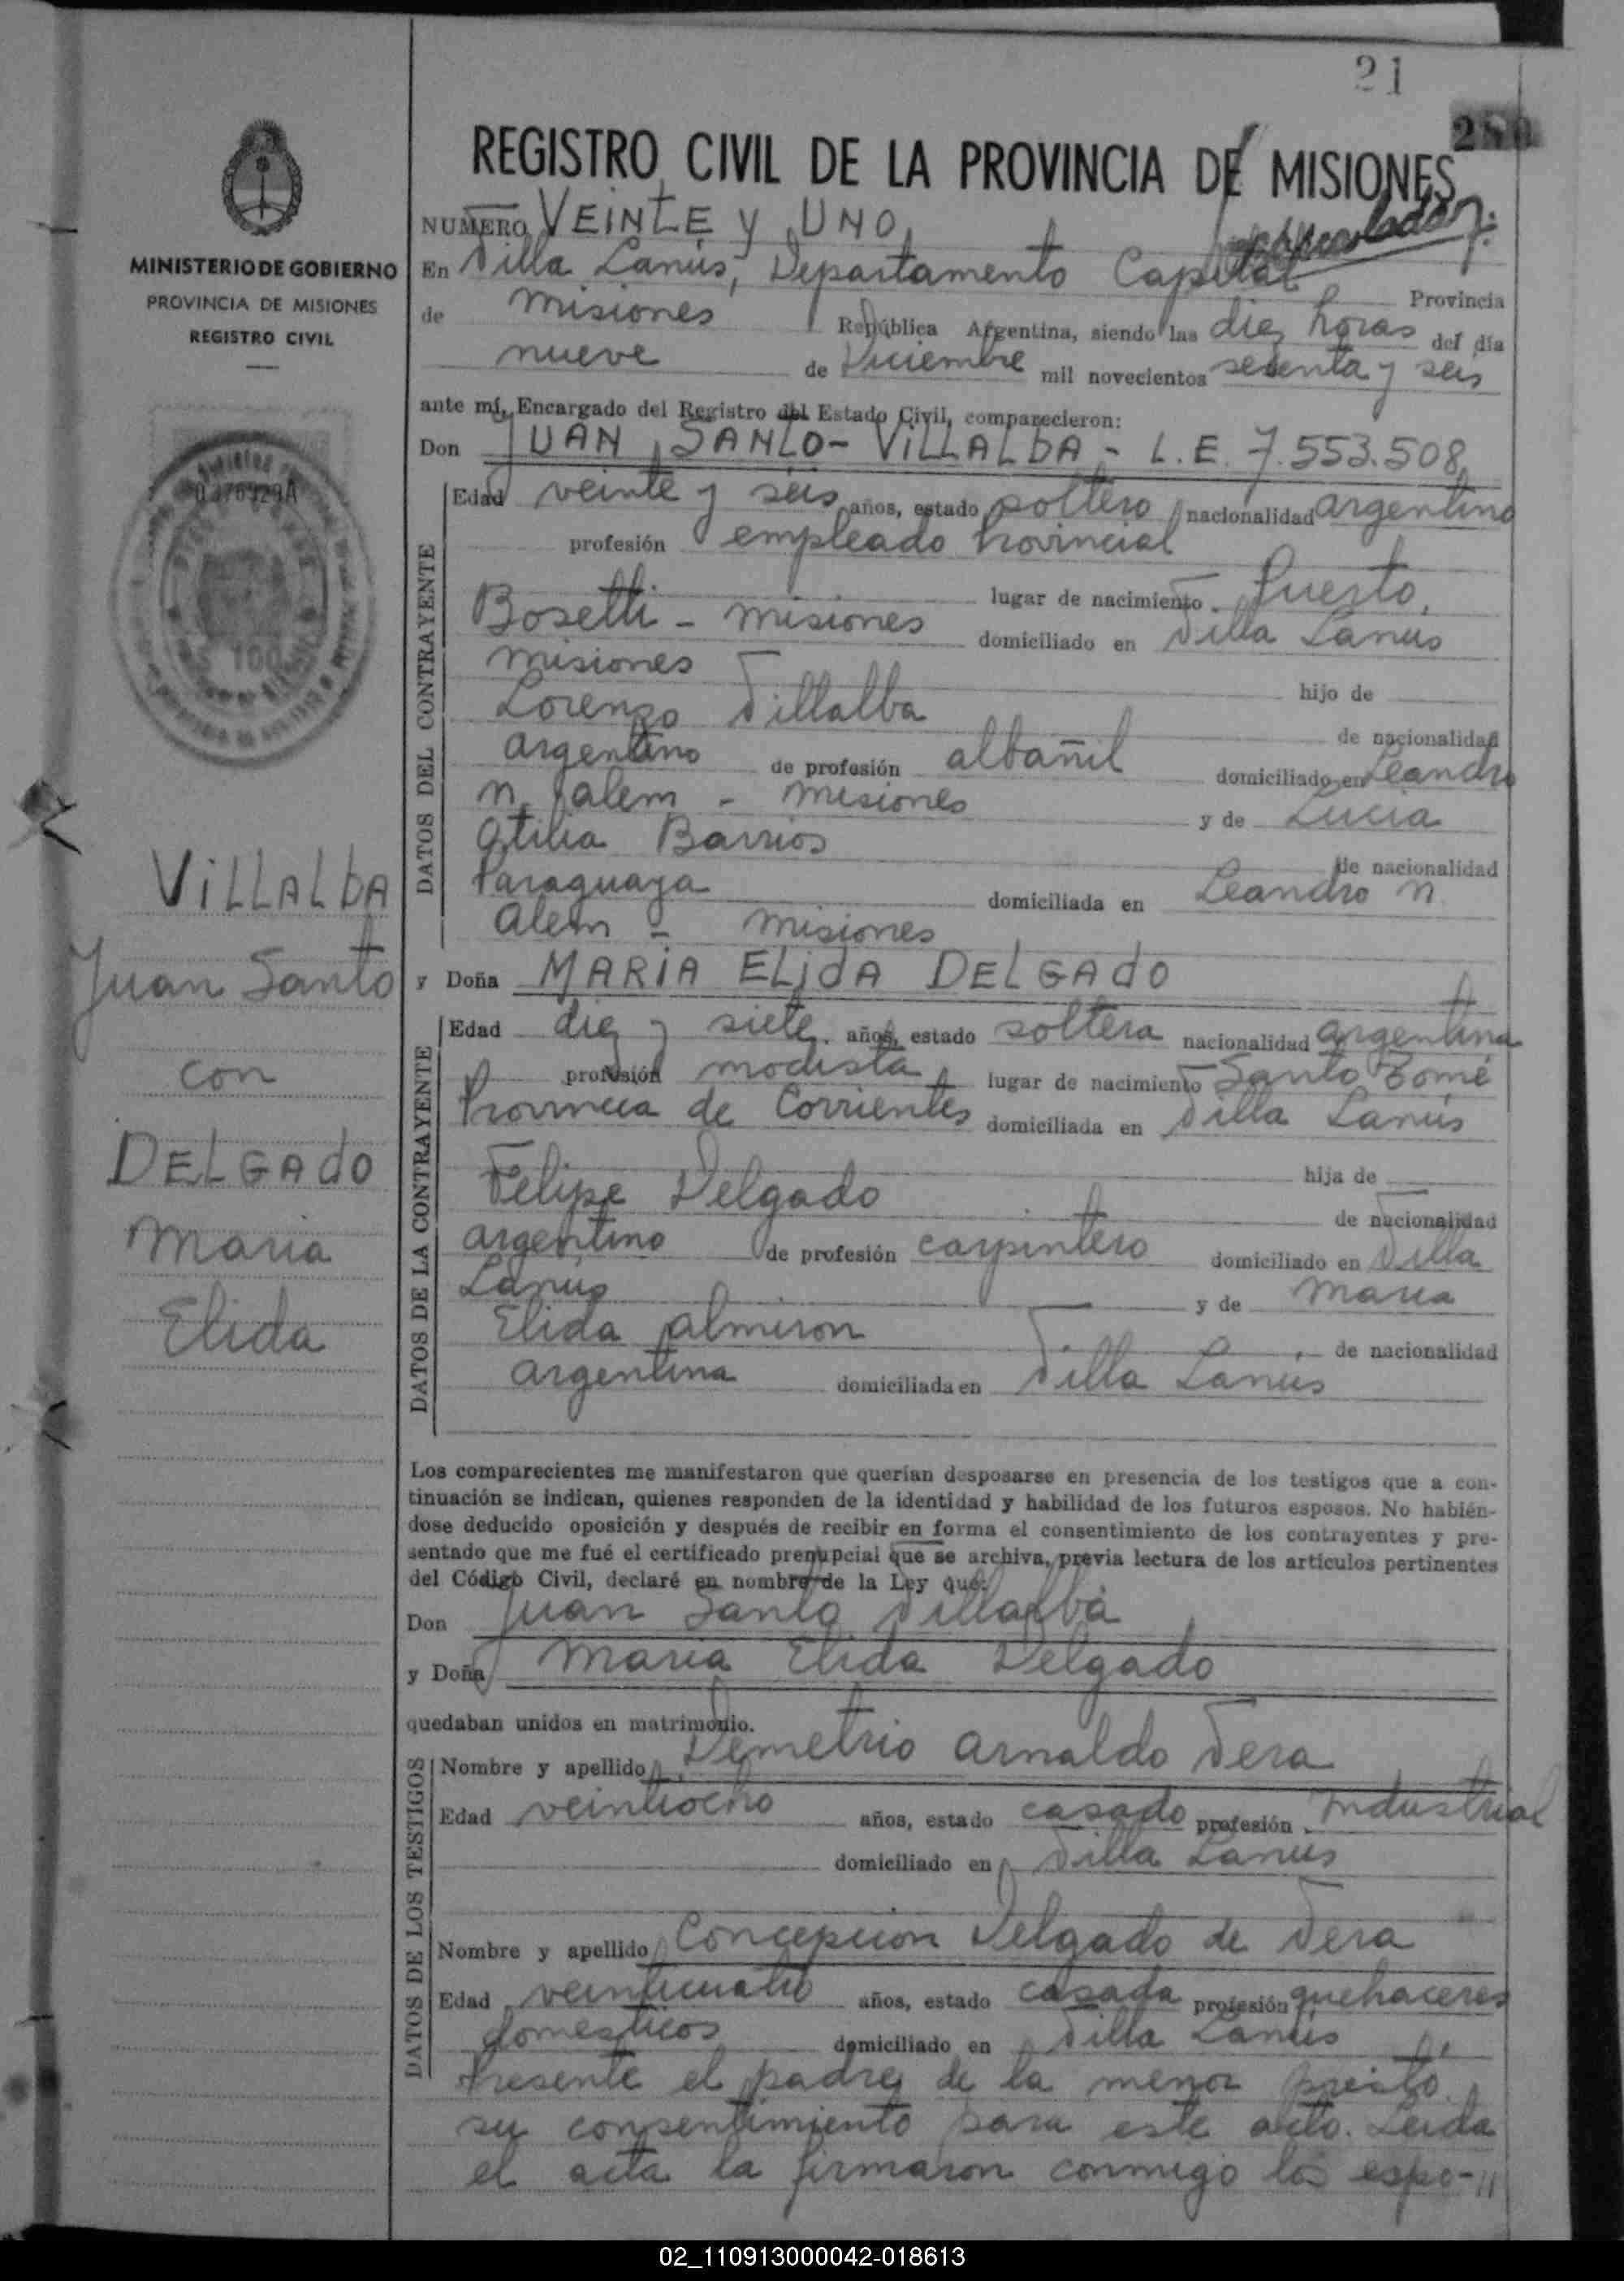 21
280
REGISTRO CIVIL DE LA PROVINCIA DE MISIONES
MINISTERIO DE GOBIERNO
PROVINCIA DE MISIONES
REGISTRO CIVIL
100
VILLALBA
Juan Santo
con
DELGADO
Maria
Elida
NUMERO VEINTE Y UNO
En Villa Lanús, Departamento Capital Provincia
de Misiones República Argentina, siendo las diez horas del día
nueve de Diciembre mil novecientos sesenta y seis
ante mí, Encargado del Registro del Estado Civil, comparecieron:
Don JUAN SANTO - VILLALBA - L.E. 7.553.508
DATOS DEL CONTRAYENTE
Edad veinte y seis años, estado soltero nacionalidad argentino
profesión empleado Provincial
lugar de nacimiento Puerto
Bosetti - Misiones domiciliado en Villa Lanús
Misiones hijo de
Lorenzo Villalba de nacionalidad
argentino de profesión albañil domiciliado en Leandro
N. Alem - Misiones y de Lucia
Otilia Barrios de nacionalidad
Paraguaya domiciliada en Leandro N.
Alem - Misiones
y Doña MARIA ELIDA DELGADO
DATOS DE LA CONTRAYENTE
Edad diez y siete años, estado soltera nacionalidad argentina
profesión modista lugar de nacimiento Santo Tomé
Provincia de Corrientes domiciliada en Villa Lanús
hija de
Felipe Delgado de nacionalidad
argentino de profesión carpintero domiciliado en Villa
Lanús y de Maria
Elida Almiron de nacionalidad
argentina domiciliada en Villa Lanús
Los comparecientes me manifestaron que querían desposarse en presencia de los testigos que a con-
tinuación se indican, quienes responden de la identidad y habilidad de los futuros esposos. No habién-
dose deducido oposición y después de recibir en forma el consentimiento de los contrayentes y pre-
sentado que me fué el certificado prenupcial que se archiva, previa lectura de los artículos pertinentes
del Código Civil, declaré en nombre de la Ley que:
Don Juan Santo Villalba
y Doña Maria Elida Delgado
quedaban unidos en matrimonio.
DATOS DE LOS TESTIGOS
Nombre y apellido Demetrio Arnaldo Vera
Edad veintiocho años, estado casado profesión Industrial
domiciliado en Villa Lanús
Nombre y apellido Concepcion Delgado de Vera
Edad veinticuatro años, estado casada profesión quehaceres
domesticos domiciliado en Villa Lanús
Presente el padre de la menor prestó
su consentimiento para este acto. Leida
el acta la firmaron conmigo los espo-//
02_110913000042-018613